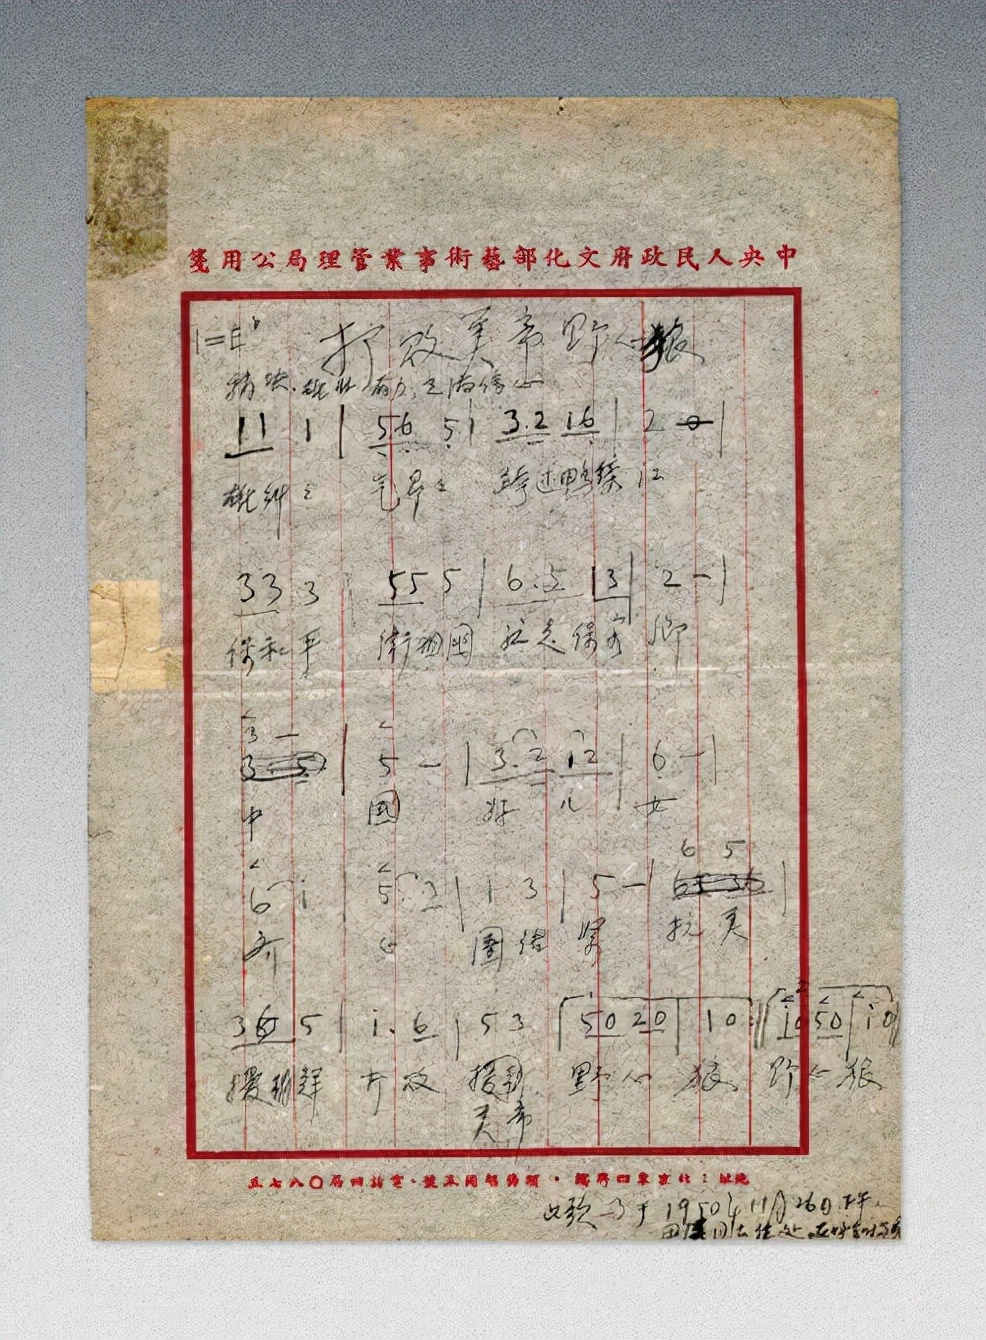 中央人民政府文化部藝術事業管理局公用箋
打敗美帝野心狼
11 1 | 56 5 | 3.2 16 | 2 - |
氣昂昂 跨过鴨綠江
33 3 | 55 5 | 6.5 3 | 2 - |
保和平 衛祖國 就是保家鄉
3 - | 5 - | 3.2 12 | 6 - |
中 國 好 儿 女
6 i | 5. 3 | 1 3 | 5 - | 6 5 |
齐 心 團結 紧 抗 美
36 5 | i. 6 | 5 3 | 50 20 | 10 | i0 50 | i0
援朝鮮 打敗 美帝 野心 狼 野心狼
此歌写于1950年11月26日下午